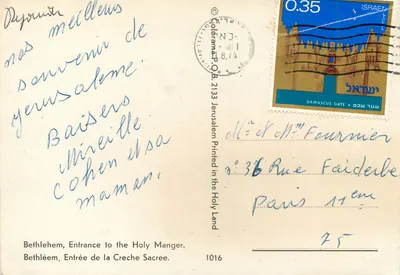 nos meilleurs
souvenir de
Jerusaleme.
Baisers
Mireille
Cohen et sa
maman.
Bethlehem, Entrance to the Holy Manger.
Bethléem, Entrée de la Creche Sacree.
1016
© Colorama P.O.B. 2133 Jerusalem Printed in the Holy Land
0.35
ISRAEL
DAMASCUS GATE
ישראל
Mr et Mme Fournier
n° 36 Rue Faiderbe
Paris 11eme
75